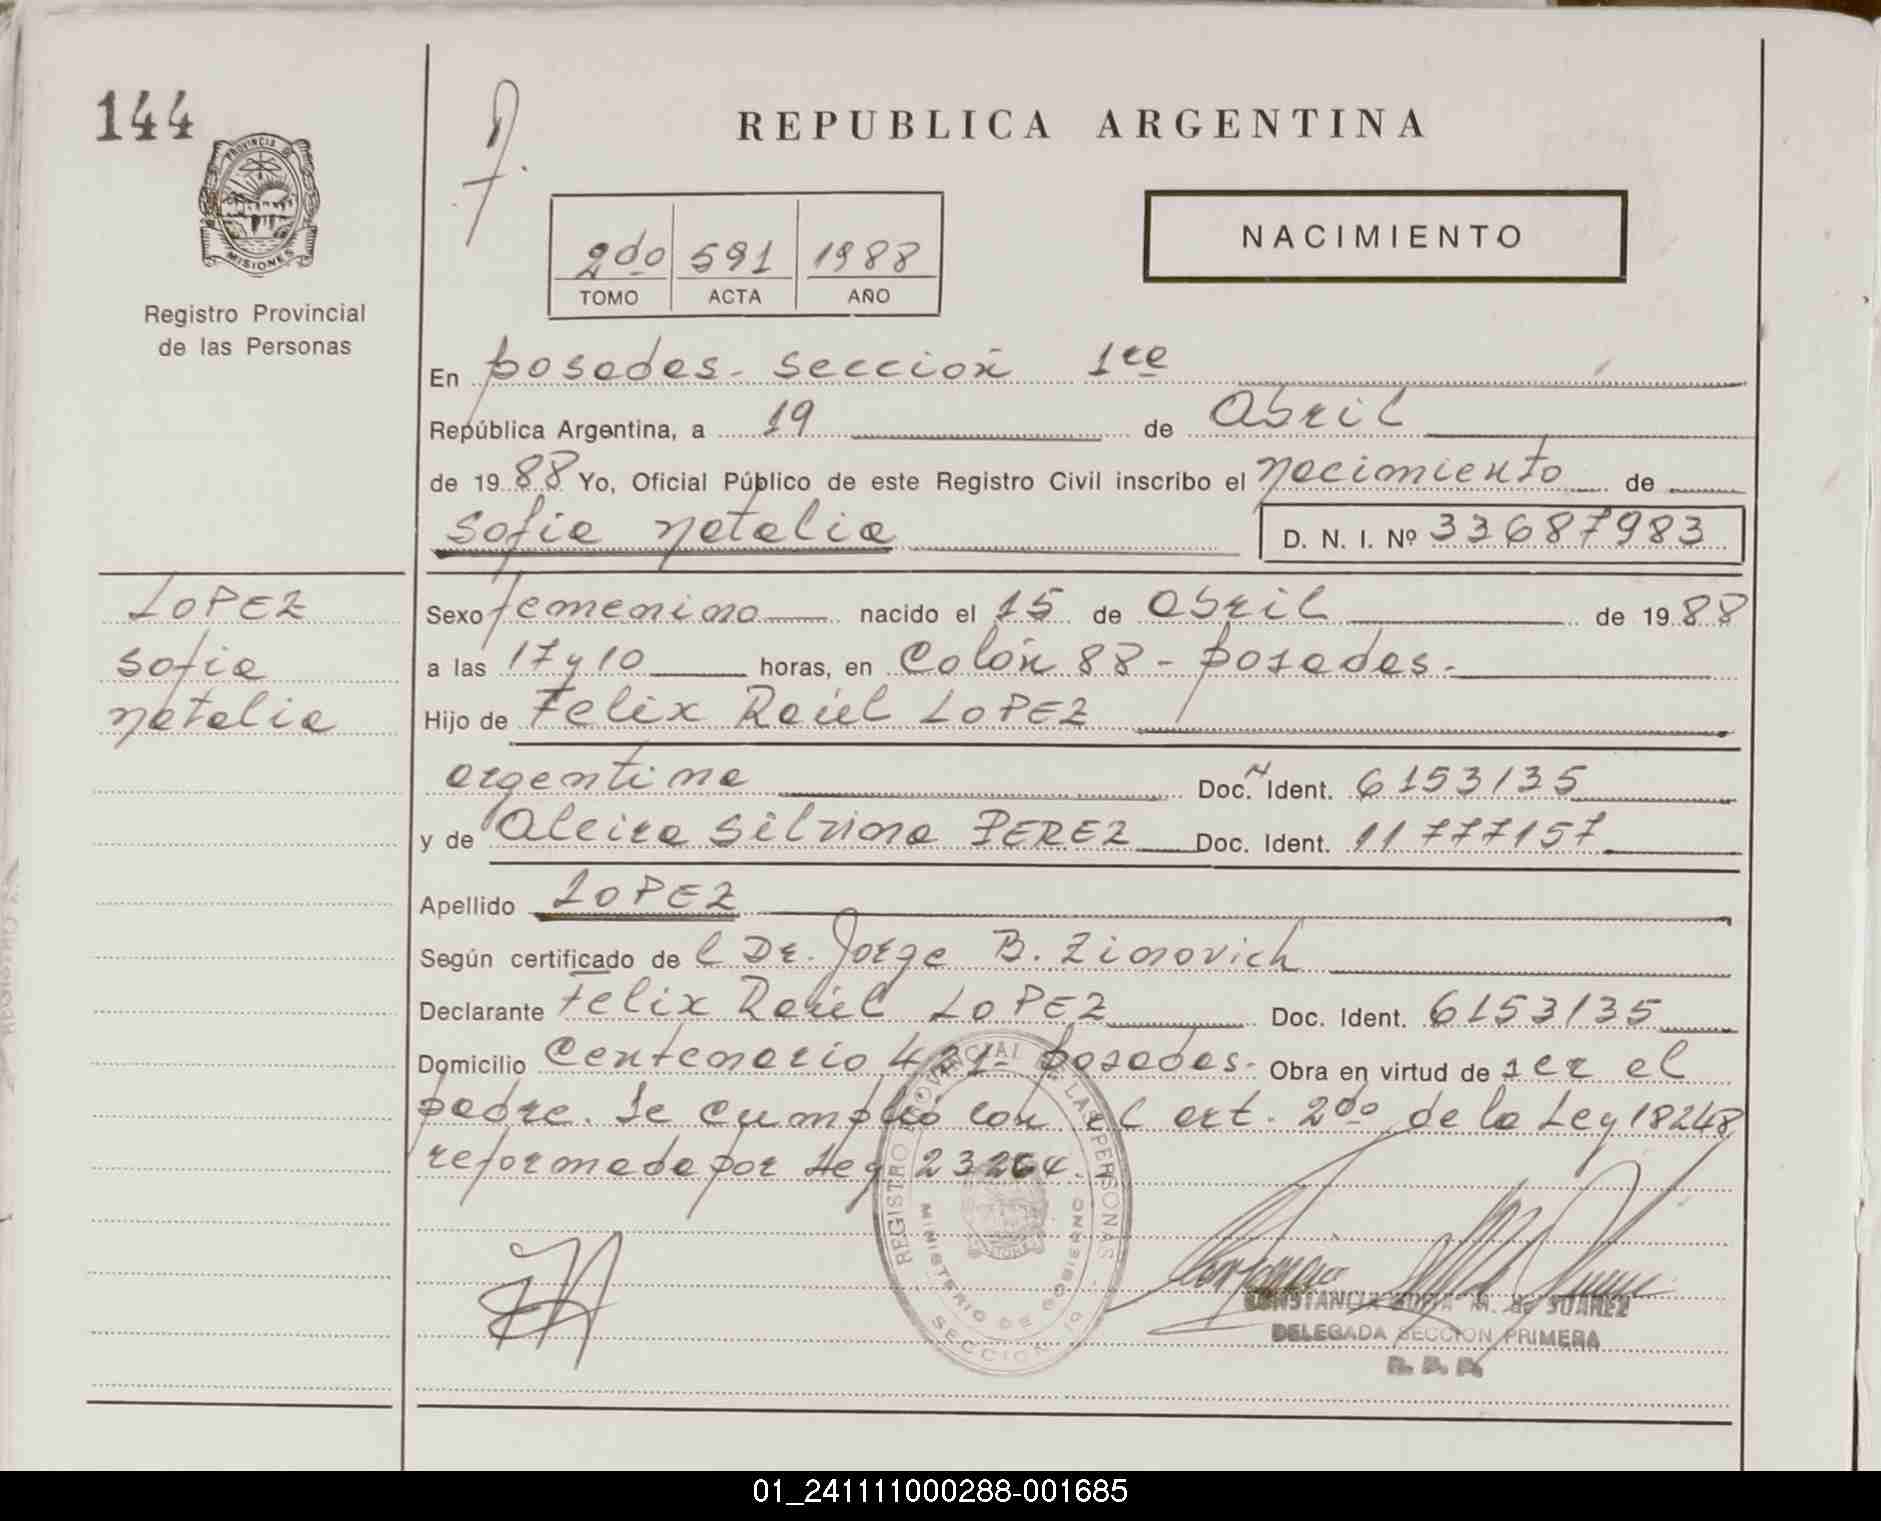 144
REPUBLICA ARGENTINA
PROVINCIA D
MISIONES
Registro Provincial
de las Personas
NACIMIENTO
2do 591 1988
TOMO ACTA AÑO
En Posadas - Sección 1ra
República Argentina, a 19 de Abril
de 1988 Yo, Oficial Público de este Registro Civil inscribo el nacimiento de
Sofia Natalia D. N. I. Nº 33687983
LOPEZ
Sofia
Natalia
Sexo femenino nacido el 15 de Abril de 1988
a las 17 y 10 horas, en Colón 88 - Posadas.
Hijo de Felix Raúl LOPEZ
argentina Doc. Ident. 6153135
y de Alcira Silvina PEREZ Doc. Ident. 11777157
Apellido LOPEZ
Según certificado de l Dr. Jorge B. Zinovich
Declarante Felix Raúl LOPEZ Doc. Ident. 6153135
Domicilio Centenario 421- Posadas. Obra en virtud de ser el
padre. Se cumplió con el art. 2do de la Ley 18248
reformada por Ley 23264.
REGISTRO PROVINCIAL DE LAS PERSONAS
MINISTERIO DE GOBIERNO
SECCION 1a
CONSTANCIA M. de SUAREZ
DELEGADA SECCION PRIMERA
R. P. P.
01_241111000288-001685